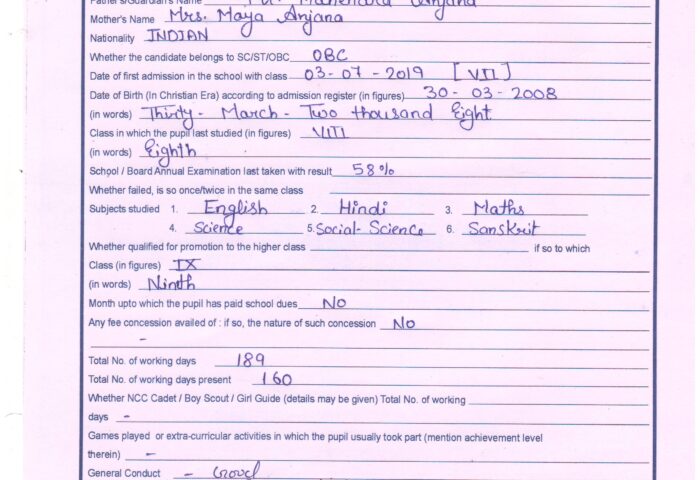 Father's/Guardian's Name Mahendra Anjana
Mother's Name Mrs. Maya Anjana
Nationality INDIAN
Whether the candidate belongs to SC/ST/OBC OBC
Date of first admission in the school with class 03-07-2019 [VII]
Date of Birth (In Christian Era) according to admission register (in figures) 30-03-2008
(in words) Thirty- March- Two thousand Eight
Class in which the pupil last studied (in figures) VIII
(in words) Eighth
School / Board Annual Examination last taken with result 58%
Whether failed, is so once/twice in the same class
Subjects studied 1. English 2. Hindi 3. Maths
4. Science 5. Social-Science 6. Sanskrit
Whether qualified for promotion to the higher class if so to which
Class (in figures) IX
(in words) Nineth
Month upto which the pupil has paid school dues NO
Any fee concession availed of : if so, the nature of such concession No
-
Total No. of working days 189
Total No. of working days present 160
Whether NCC Cadet / Boy Scout / Girl Guide (details may be given) Total No. of working
days -
Games played or extra-curricular activities in which the pupil usually took part (mention achievement level
therein) -
General Conduct - Good